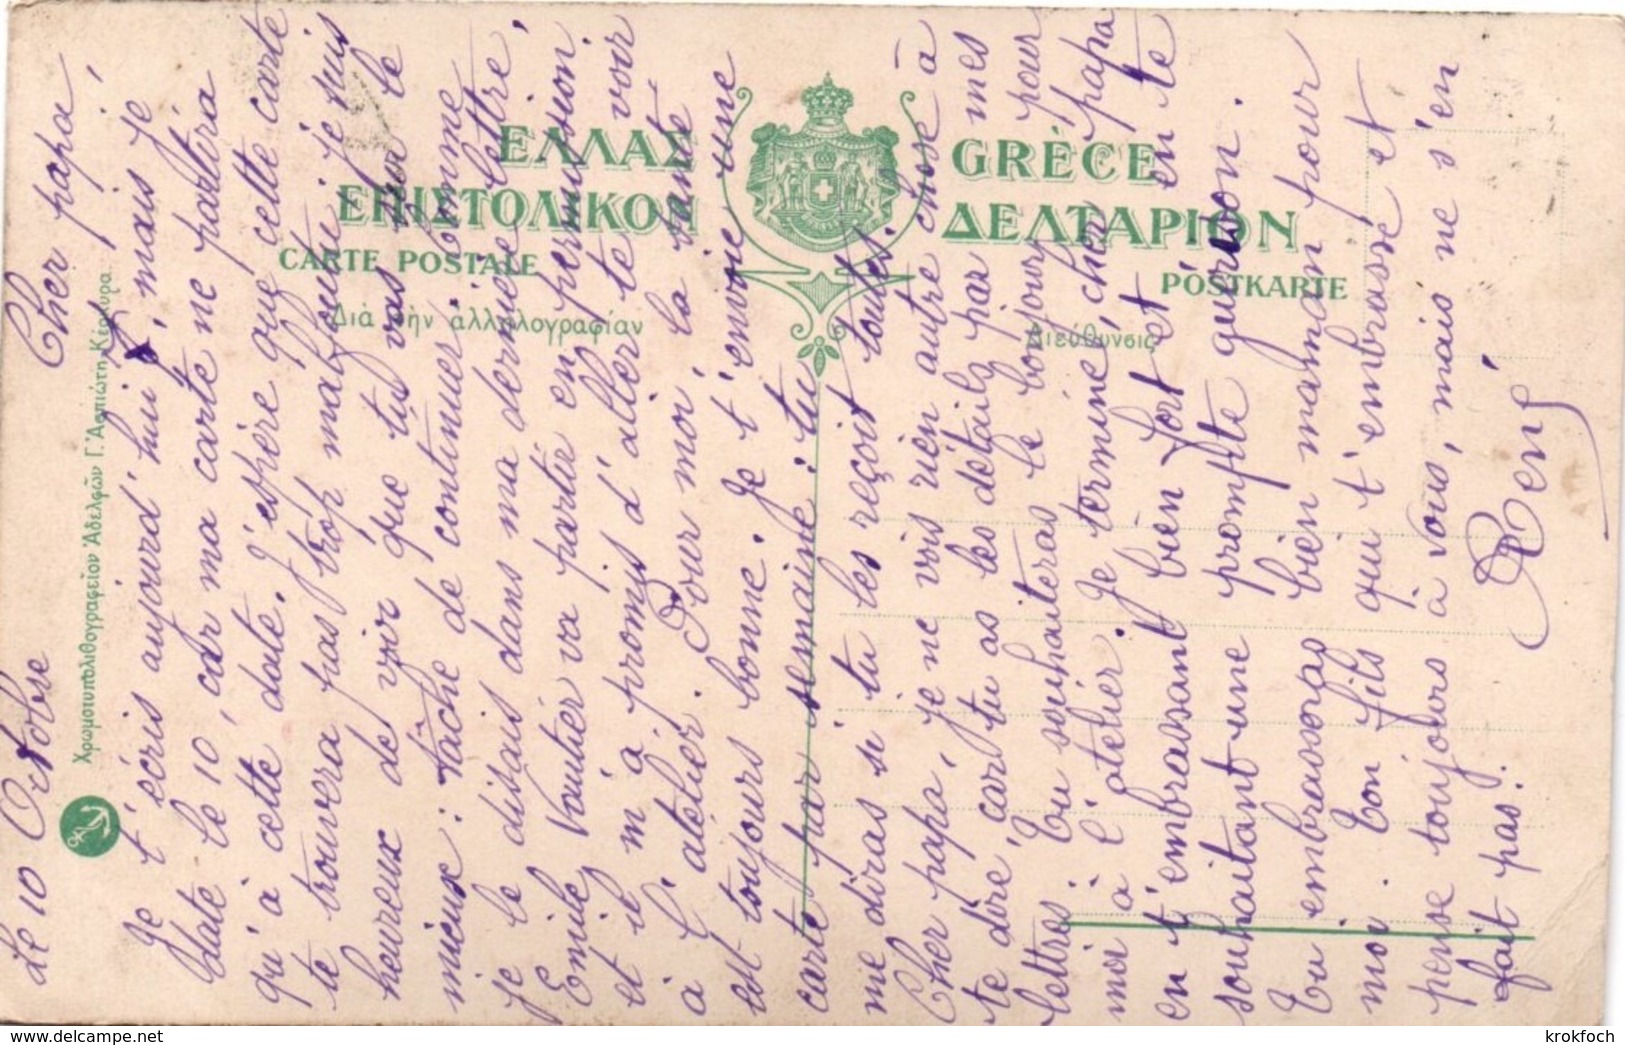 ΕΛΛΑΣ
GRÈCE
ΕΠΙΣΤΟΛΙΚΟΝ
ΔΕΛΤΑΡΙΟΝ
CARTE POSTALE
POSTKARTE
Διὰ τὴν ἀλληλογραφίαν
Διεύθυνσις
Χρωμοτυπολιθογραφεῖον Ἀδελφῶν Γ. Ἀσπιώτη-Κέρκυρα
Le 10 Octobre
Cher papa,
Je t'écris aujourd'hui 8, mais je
date le 10, car ma carte ne partira
qu'à cette date. J'espère que cette carte
te trouvera pas trop malfoutu je suis
heureux de voir que tu vas un peu le
mieux: tâche de continuer. Comme
je le disais dans ma dernière lettre,
Emile Vautier va partir en permission
et il m'a promis d'aller te voir
à l'atelier. Pour moi, la santé
est toujours bonne. Je t'envoie une
carte par semaine: tu
me diras si tu les reçoit toutes.
Cher papa, je ne vois rien autre chose à
te dire, car tu as les détails par mes
lettres. Tu souhaiteras le bonjour pour
moi à l'atelier. Je termine, cher papa
en t'embrassant bien fort et en te
souhaitant une prompte guérison.
Tu embrasseras bien maman pour
moi. Ton fils qui t'embrasse et
pense toujours à vous, mais ne s'en
fait pas!
René
krokfoch